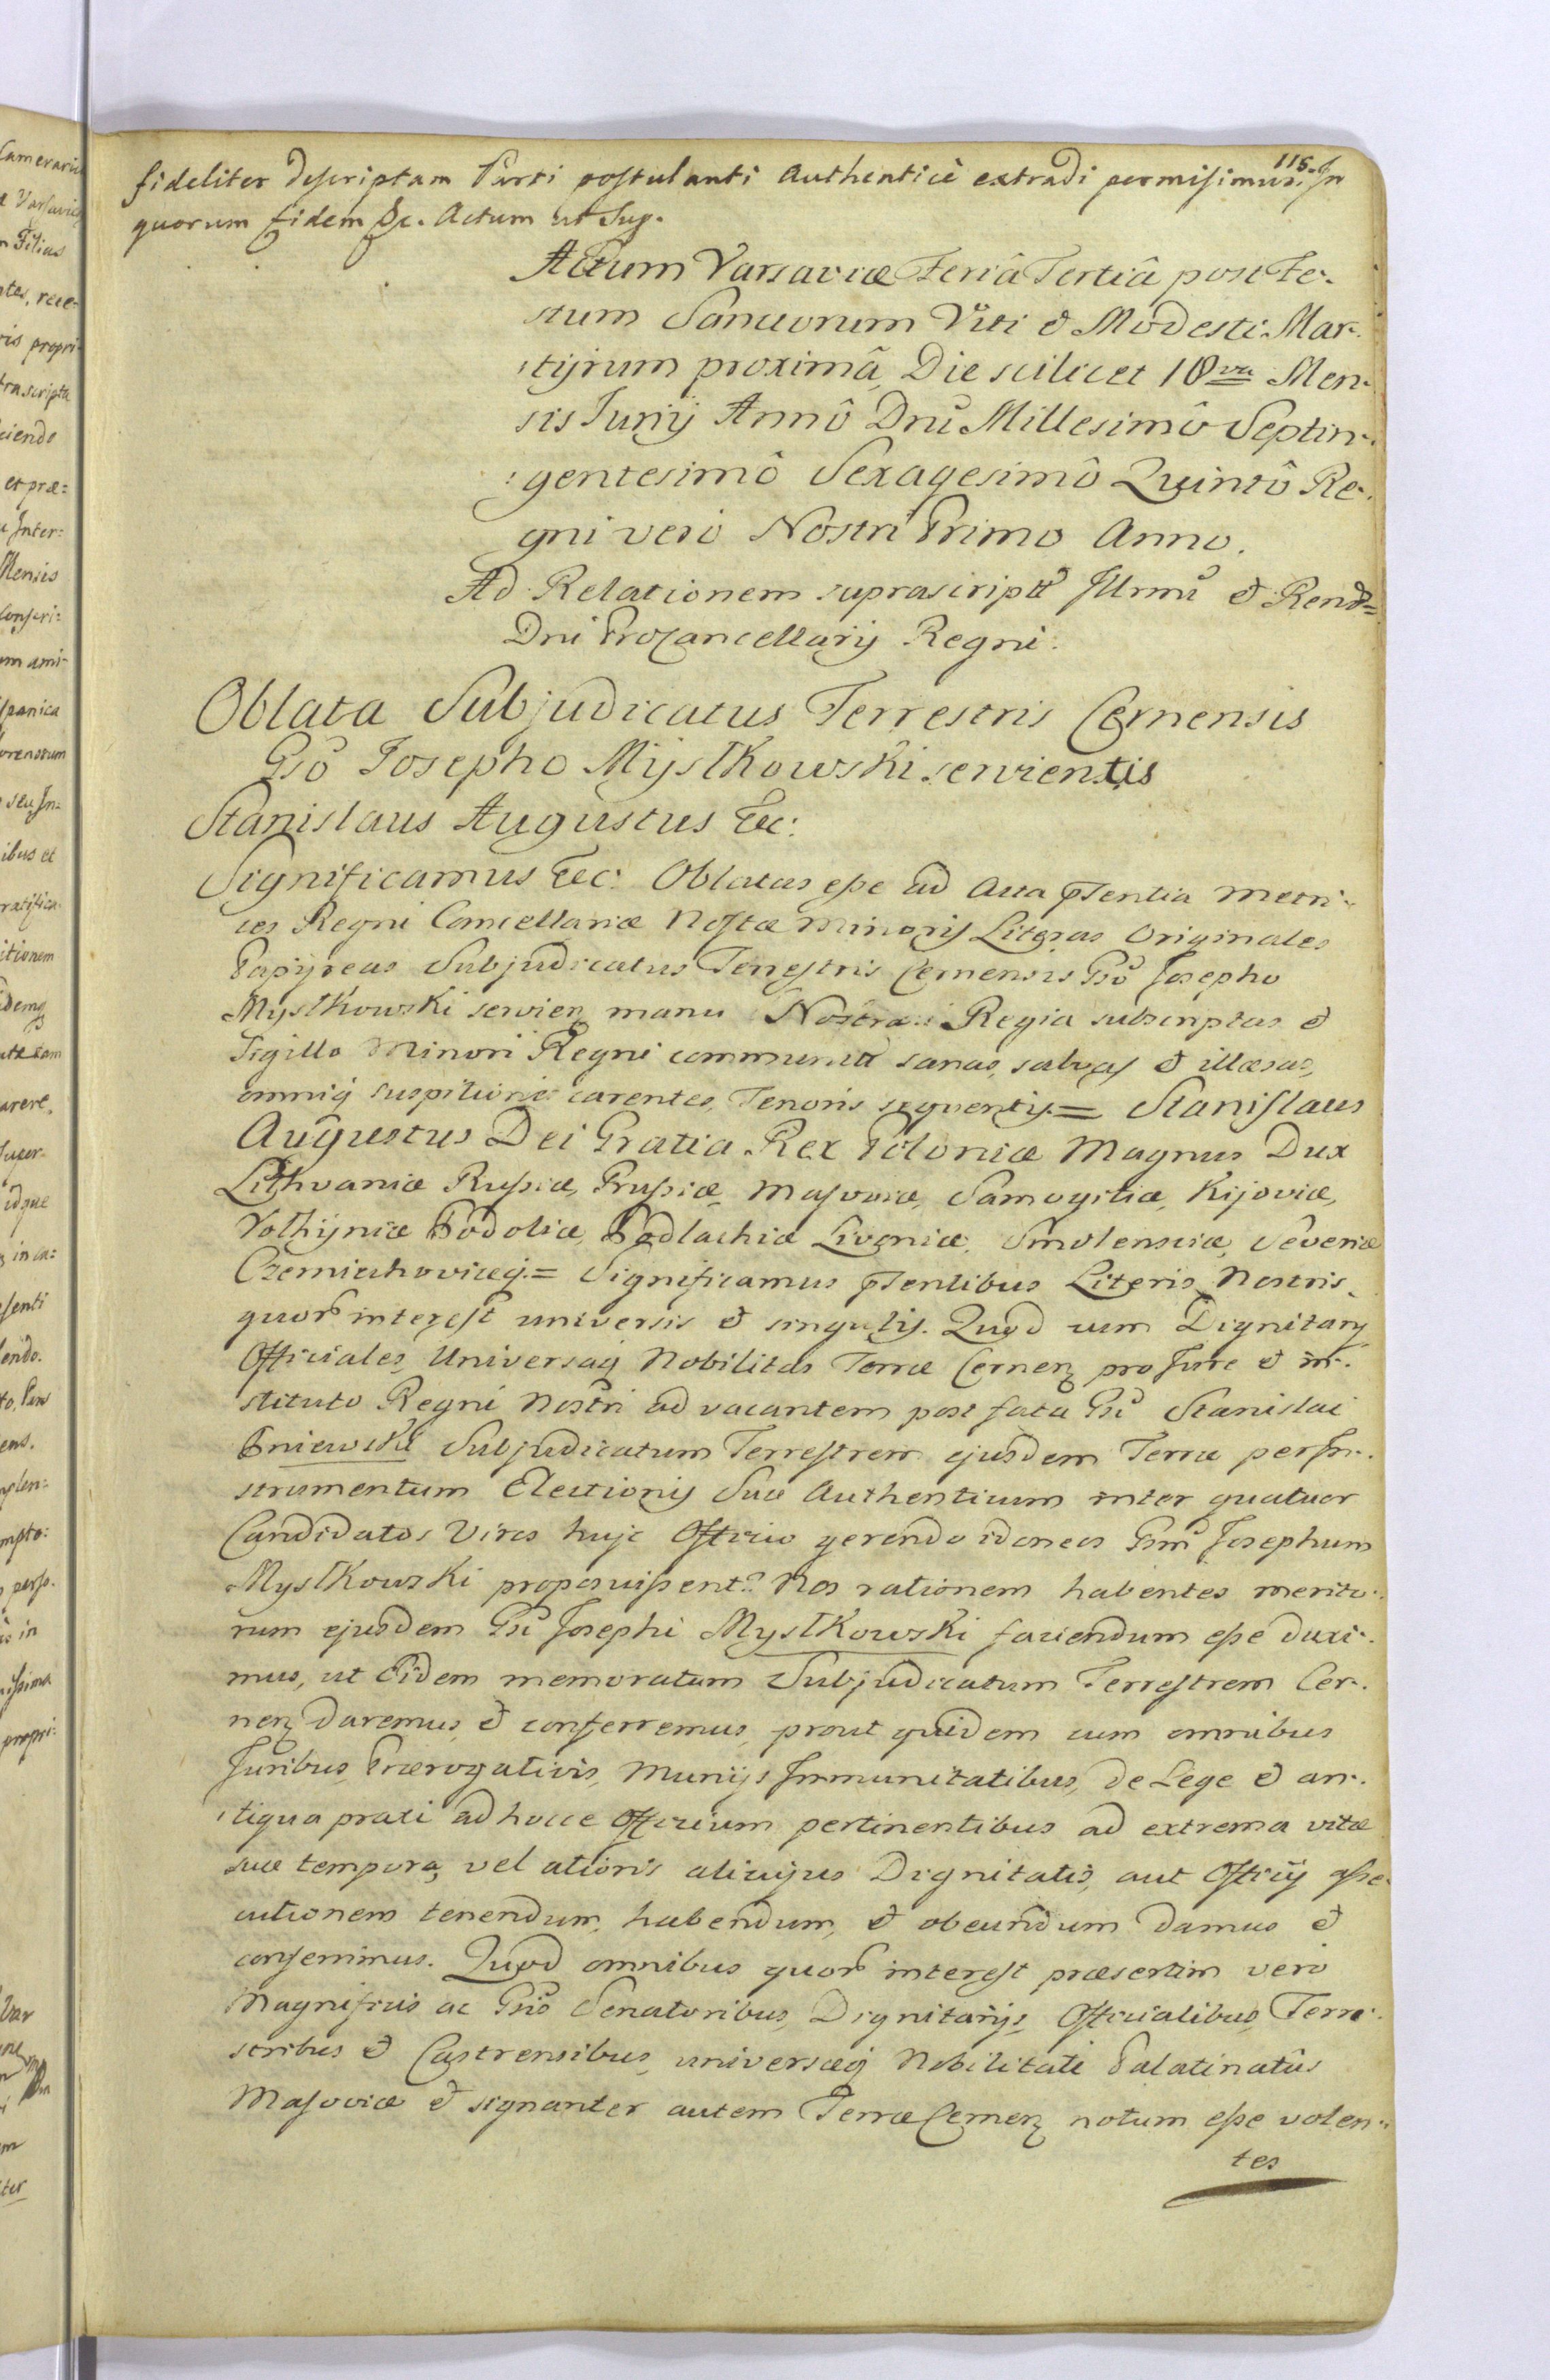 115.
fideliter descriptam Parti postulanti Authenticè extradi permisimus. In
quorum fidem &c. Actum ut Sup.
Actum Varsaviæ Feriâ Tertiâ post Fe-
stum Sanctorum Viti & Modesti Mar-
tyrum proximâ, Die scilicet 18va Men-
sis Junij Annô Dnī Millesimô Septin-
gentesimô Sexagesimô Quintô Re-
gni vero Nostri Primo Anno.
Ad Relationem suprascript Illmi & Rendi
Dni ProCancellarij Regni.
Oblata Subjudicatus Terrestris Cernensis
Gso Josepho Mystkowski servientis
Stanislaus Augustus &c:
Significamus &c: Oblatas esse ad Acta pñsentia Metri-
ces Regni Cancellariæ Nostræ Minoris Literas Originales
Papyreas Subjudicatus Terrestris Cernensis Gso Josepho
Mystkowski servien manu Nostra Regia subscriptas &
Sigillo Minori Regni communit sanas, salvas & illæsas,
omniq suspitione carentes, Tenoris sequentis = Stanislaus
Augustus Dei Gratia Rex Poloniæ Magnus Dux
Lithvaniæ Russiæ, Prussiæ, Masoviæ, Samogitiæ, Kijoviæ,
Volhyniæ Podoliæ, Podlachiæ Livoniæ, Smolensciæ, Severiæ
Czerniechoviæq. = Significamus pñsentibus Literis Nostris,
quor interest universis & singulis. Quod cum Dignitarij
Officiales, Universaq Nobilitas Terræ Cernen pro Jure & in-
stituto Regni Nostri ad vacantem post fata Gsi Stanislai
Gniewski Subjudicatum Terrestrem ejusdem Terræ per In-
strumentum Electionis Suæ Authenticum inter quatuor
Candidatos Viros huic Officio gerendo idoneos Gsm Josephum
Mystkowski proposuissent. Nos rationem habentes merito-
rum ejusdem Gsi Josephi Mystkowski faciendum esse duxi-
mus, ut Eidem memoratum Subjudicatum Terrestrem Cer-
nen daremus, & conferremus, prout quidem cum omnibus
Juribus, Prærogativis, Munijs Immunitatibus, de Lege & an-
tiqua praxi ad hocce Officium pertinentibus ad extrema vitæ
suæ tempora, vel altioris alicujus Dignitatis, aut Officij asse-
cutionem tenendum, habendum, & obeundum damus &
conferimus. Quod omnibus quor interest præsertim vero
Magnificis ac Gsis Senatoribus, Dignitarijs, Officialibus, Terre-
stribus & Castrensibus, universæq Nobilitati Palatinatûs
Masoviæ & signanter autem Terræ Cernen notum esse volen-
tes